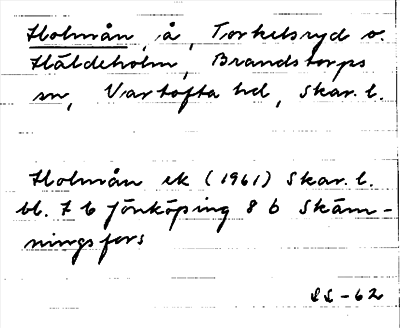 Holmån, å, Torkelsryd o.
Häldeholm, Brandstorps
sn, Vartofta hd, Skar. l.
Holmån ek (1961) Skar. l.
bl. 7 b Jönköping 8 b Skäm-
ningsfors
LL-62